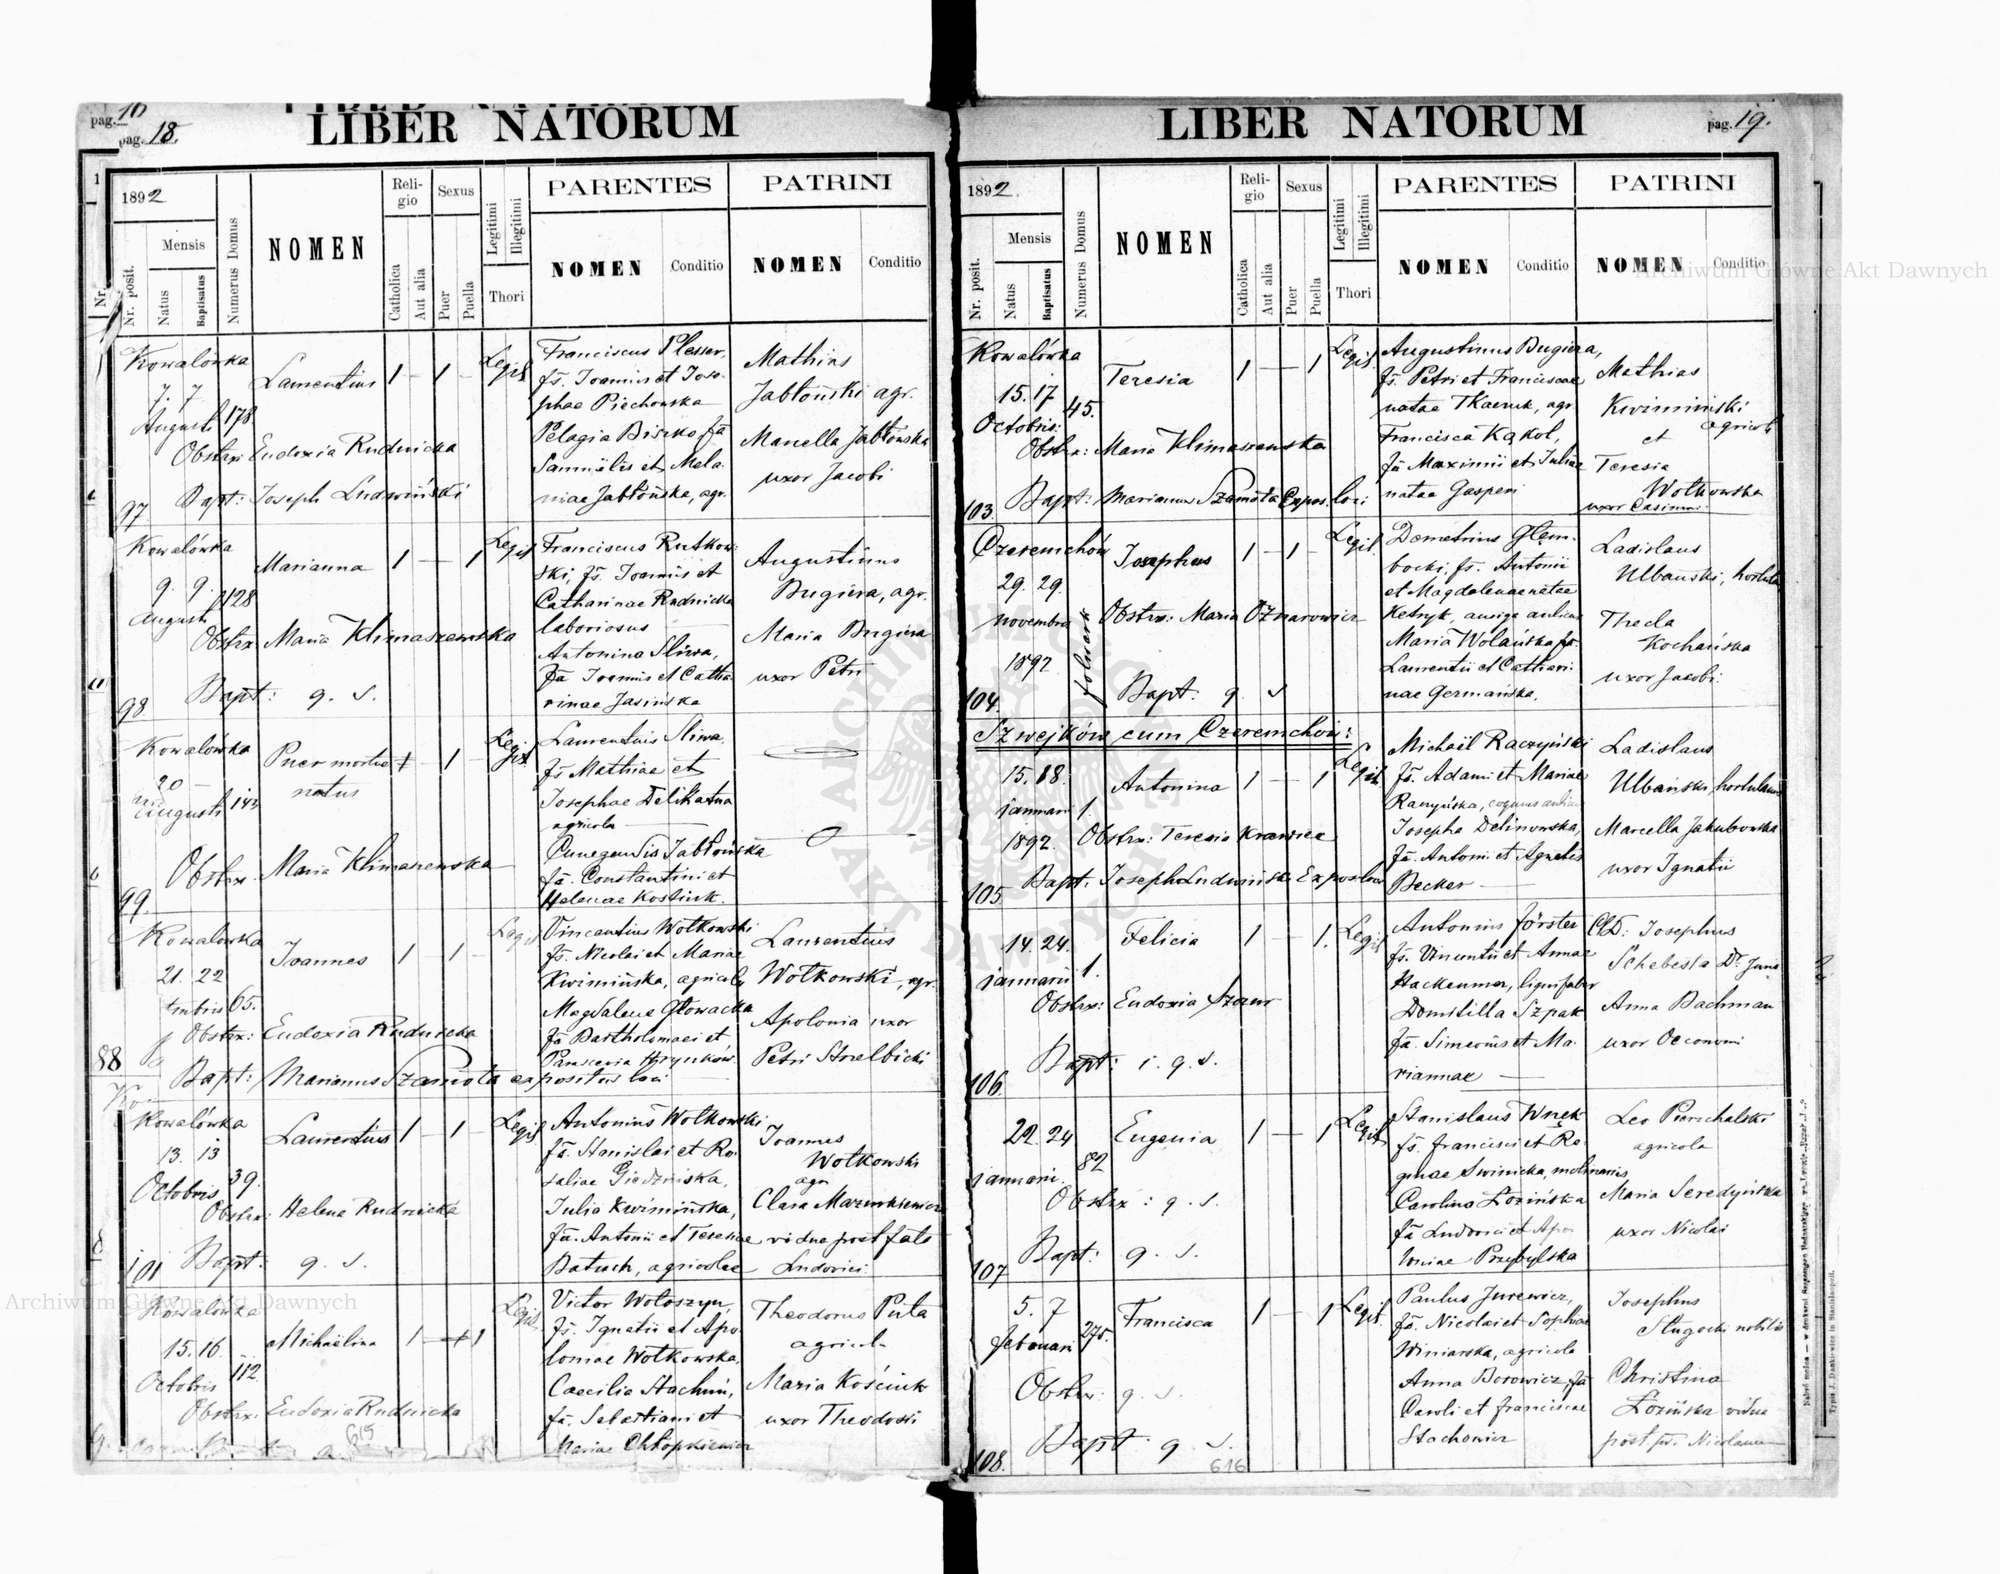 pag. 18.
LIBER NATORUM
1892
Nr. posit.
Mensis
Natus
Baptisatus
Numerus Domus
NOMEN
Religio
Catholica
Aut alia
Sexus
Puer
Puella
Legitimi
Illegitimi
Thori
PARENTES
NOMEN
Conditio
PATRINI
NOMEN
Conditio
Kowalówka
7. 7
Augusti 178.
Laurentius
1 - 1 -
Legit
Obstrx: Eudoxia Rudnicka
97 Bapt: Joseph Ludwiński
Franciscus Plesser,
fs. Joannis et Jose-
phae Piechowska
Pelagia Biszko fa
Samuelis et Mela-
niae Jabłońska, agr.
Mathias
Jabłoński agr.
Marcella Jabłońska
uxor Jacobi
Kowalówka
9. 9.
Augusti 128
Marianna
1 - 1
Legit
Obstrx. Maria Klimaszewska
98. Bapt: q. s.
Franciscus Rutkow-
ski, fs. Joannis et
Catharinae Rudnicka
laboriosus
Antonina Sliwa,
fa Joannis et Catha-
rinae Jasińska
Augustinus
Bugiera, agr.
Maria Bugiera
uxor Petri
Kowalówka
20 -
Augusti 143
Puer mortuo
natus
Legit
Obstrx. Maria Klimaszewska
99.
Laurentius Sliwa
fs Mathiae et
Josephae Delikatna
agricola
Cunegundis Jabłońska
fa. Constantini et
Helenae Kostiuk.
Kowalówka
21. 22
65.
Joannes
1 1
Legit
Obstrx: Eudoxia Rudnicka
Bapt: Marianus Szamota expositus loci
Vincentius Wołkowski
fs. Nicolai et Mariae
Kwimińska, agricola
Magdalena Głowacka
fa Bartholomaei et
Parascevia Hrynków.
Laurentius
Wołkowski, agr.
Apolonia uxor
Petri Strelbicki
88
Kowalówka
13. 13
Octobris 39.
Laurentius
1 - 1 -
Legit
Obstrx: Helena Rudnicka
101 Bapt: q. s.
Antonius Wołkowski
fs. Stanislai et Ro-
saliae Giedzińska,
Julia Kwimińska,
fa. Antonii et Teresiae
Batiuch, agricolae
Joannes
Wołkowski
agr
Clara Mazurkiewicz
vidua post fata
Ludovici
Kowalówka
15. 16.
Octobris 112
Michaëlina
Legit.
Obstrx. Eudoxia Rudnicka
Victor Wołoszyn,
fs. Ignatii et Apo-
loniae Wołkowska.
Caecilia Stachuń,
fa. Sebastiani et
Mariae Chłopkiewicz
Theodorus Puta
agricola
Maria Kościuk
uxor Theodosii
615
LIBER NATORUM
pag. 19.
1892.
Nr. posit.
Mensis
Natus
Baptisatus
Numerus Domus
NOMEN
Religio
Catholica
Aut alia
Sexus
Puer
Puella
Legitimi
Illegitimi
Thori
PARENTES
NOMEN
Conditio
PATRINI
NOMEN
Conditio
Archiwum Główne Akt Dawnych
Kowalówka
15. 17
Octobris: 45.
Teresia
1 - 1
Legit.
Obstrx: Maria Klimaszewska
103. Bapt: Marianus Szamota Expos. loci
Augustinus Bugiera,
fs. Petri et Franciscae
natae Tkaczuk, agr.
Francisca Kąkol,
fa Maximii et Juliae
natae Gasperi
Mathias
Kwimiński
agricola
et
Teresia
Wołkowska
uxor Casimiri.
Czeremchów
29. 29.
novembris
1892
folwark
Josephus
1 - 1 -
Legit.
Obstrx: Maria Oznarowicz
104. Bapt: q. s
Demetrius Głem-
bocki, fs. Antonii
et Magdalenae natae
Ketryk, auriga aulicus
Maria Wolańska fa.
Laurentii et Cathari-
nae Germańska.
Ladislaus
Ulbański, hortulan
Thecla
Kochańska
uxor Jacobi.
Szwejków cum Czeremchów:
15. 18.
januarii 1.
1892.
Antonina
1 - 1
Legit.
Obstrx: Teresia Krawiec
105. Bapt. Joseph Ludwiński Expos loci
Michaël Raczyński
fs. Adami et Mariae
Raczyńska,
Josepha Delinowska,
fa. Antonii et Agnetis
Becker -
Ladislaus
Ulbański, hortulanus
Marcella Jakubowska
uxor Ignatii
14. 24.
januarii 1.
Felicia
1 - 1.
Legit
Obstrx: Eudoxia Szczur
106. Bapt: i. q. s.
Antonius Förster
fs. Vincentii et Annae
Hackenmer, lignifaber
Domitilla Szpak
fa. Simeonis et Ma-
riannae -
Josephus
Schebesta Dr. Juris
Anna Bachman
uxor Oeconomi
22. 24
januarii. 82
Eugenia
1 - 1
Legit.
Obstrx: q. s.
107 Bapt: q. s.
Stanislaus Wnęk
fs. Francisci et Re-
ginae Swinicka, molinarius
Carolina Łozińska
fa Ludovici et Apo-
loniae Przybylska
Leo Pierschalski
agricola
Maria Seredyńska
uxor Nicolai
5. 7
februarii 275.
Francisca
1 - 1
Legit.
Obstrx: q. s.
108. Bapt q. s.
Paulus Jurewicz,
fs. Nicolai et Sophiae
Winiarska, agricola
Anna Borowicz fa
Caroli et Franciscae
Stachowicz
Josephus
Sługocki nobilis
Christina
Łozińska vidua
post fs. Nicolaum
616
Archiwum Główne Akt Dawnych